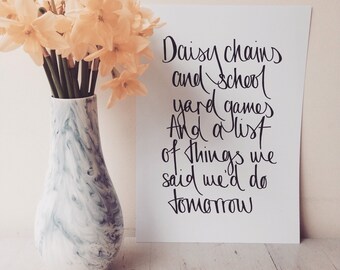 Daisy chains
and school
yard games
And a list
of things we
said we'd do
tomorrow